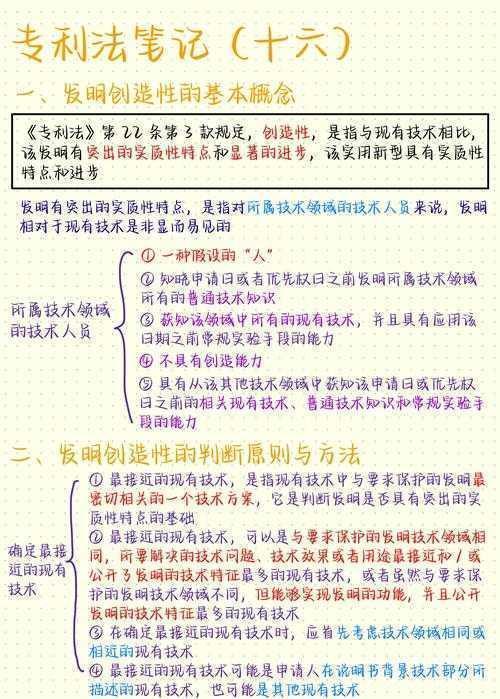 专利法笔记（十六）
一、发明创造性的基本概念
《专利法》第22条第3款规定，创造性，是指与现有技术相比，
该发明有突出的实质性特点和显著的进步，该实用新型具有实质性
特点和进步
发明有突出的实质性特点，是指对所属技术领域的技术人员来说，发明
相对于现有技术是非显而易见的
所属技术领域
的技术人员
① 一种假设的“人”
② 知晓申请日或者优先权日之前发明所属技术领域
所有的普通技术知识
③ 获知该领域中所有的现有技术，并且具有应用该
日期之前常规实验手段的能力
④ 不具有创造能力
⑤ 具有从该其他技术领域中获知该申请日或优先权
日之前的相关现有技术、普通技术知识和常规实验手
段的能力
二、发明创造性的判断原则与方法
确定最接
近的现有
技术
① 最接近的现有技术，是指现有技术中与要求保护的发明最
密切相关的一个技术方案，它是判断发明是否具有突出的实
质性特点的基础
② 最接近的现有技术，可以是与要求保护的发明技术领域相
同，所要解决的技术问题、技术效果或者用途最接近和／或
公开了发明的技术特征最多的现有技术，或者虽然与要求保
护的发明技术领域不同，但能够实现发明的功能，并且公开
发明的技术特征最多的现有技术
③ 在确定最接近的现有技术时，应首先考虑技术领域相同或
相近的现有技术
④ 最接近的现有技术可能是申请人在说明书背景技术部分所
描述的现有技术，也可能是其他现有技术